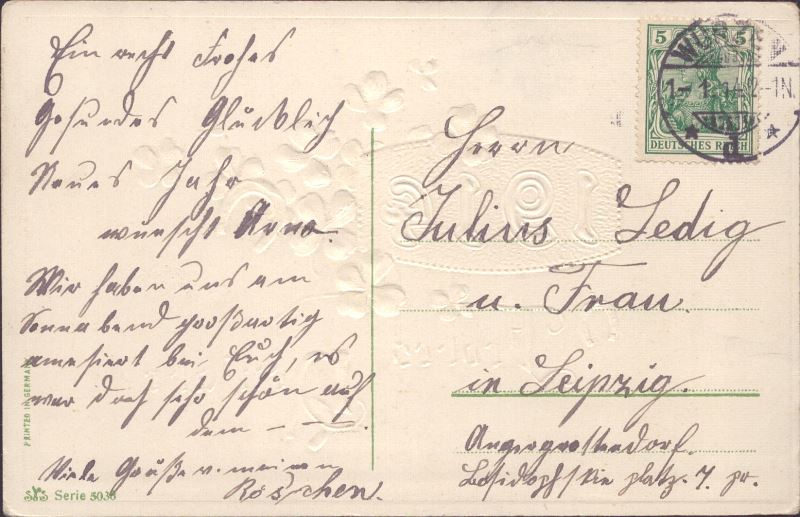 Ein recht Frohes
Gesundes Glücklich
Neues Jahr
wünscht Arno.
Wir haben uns am
Sonnabend großartig
amesiert bei Euch, es
war doch sehr schön auf
dem — —.
Viele Grüße v. meinem
Röschen.
PRINTED IN GERMANY
Serie 5036
5 5
DEUTSCHES REICH
WURZE
1-1.14.12-1N.
Herrn
Julius Ledig
u. Frau.
in Leipzig.
Angergrottendorf.
platz. 7. pr.